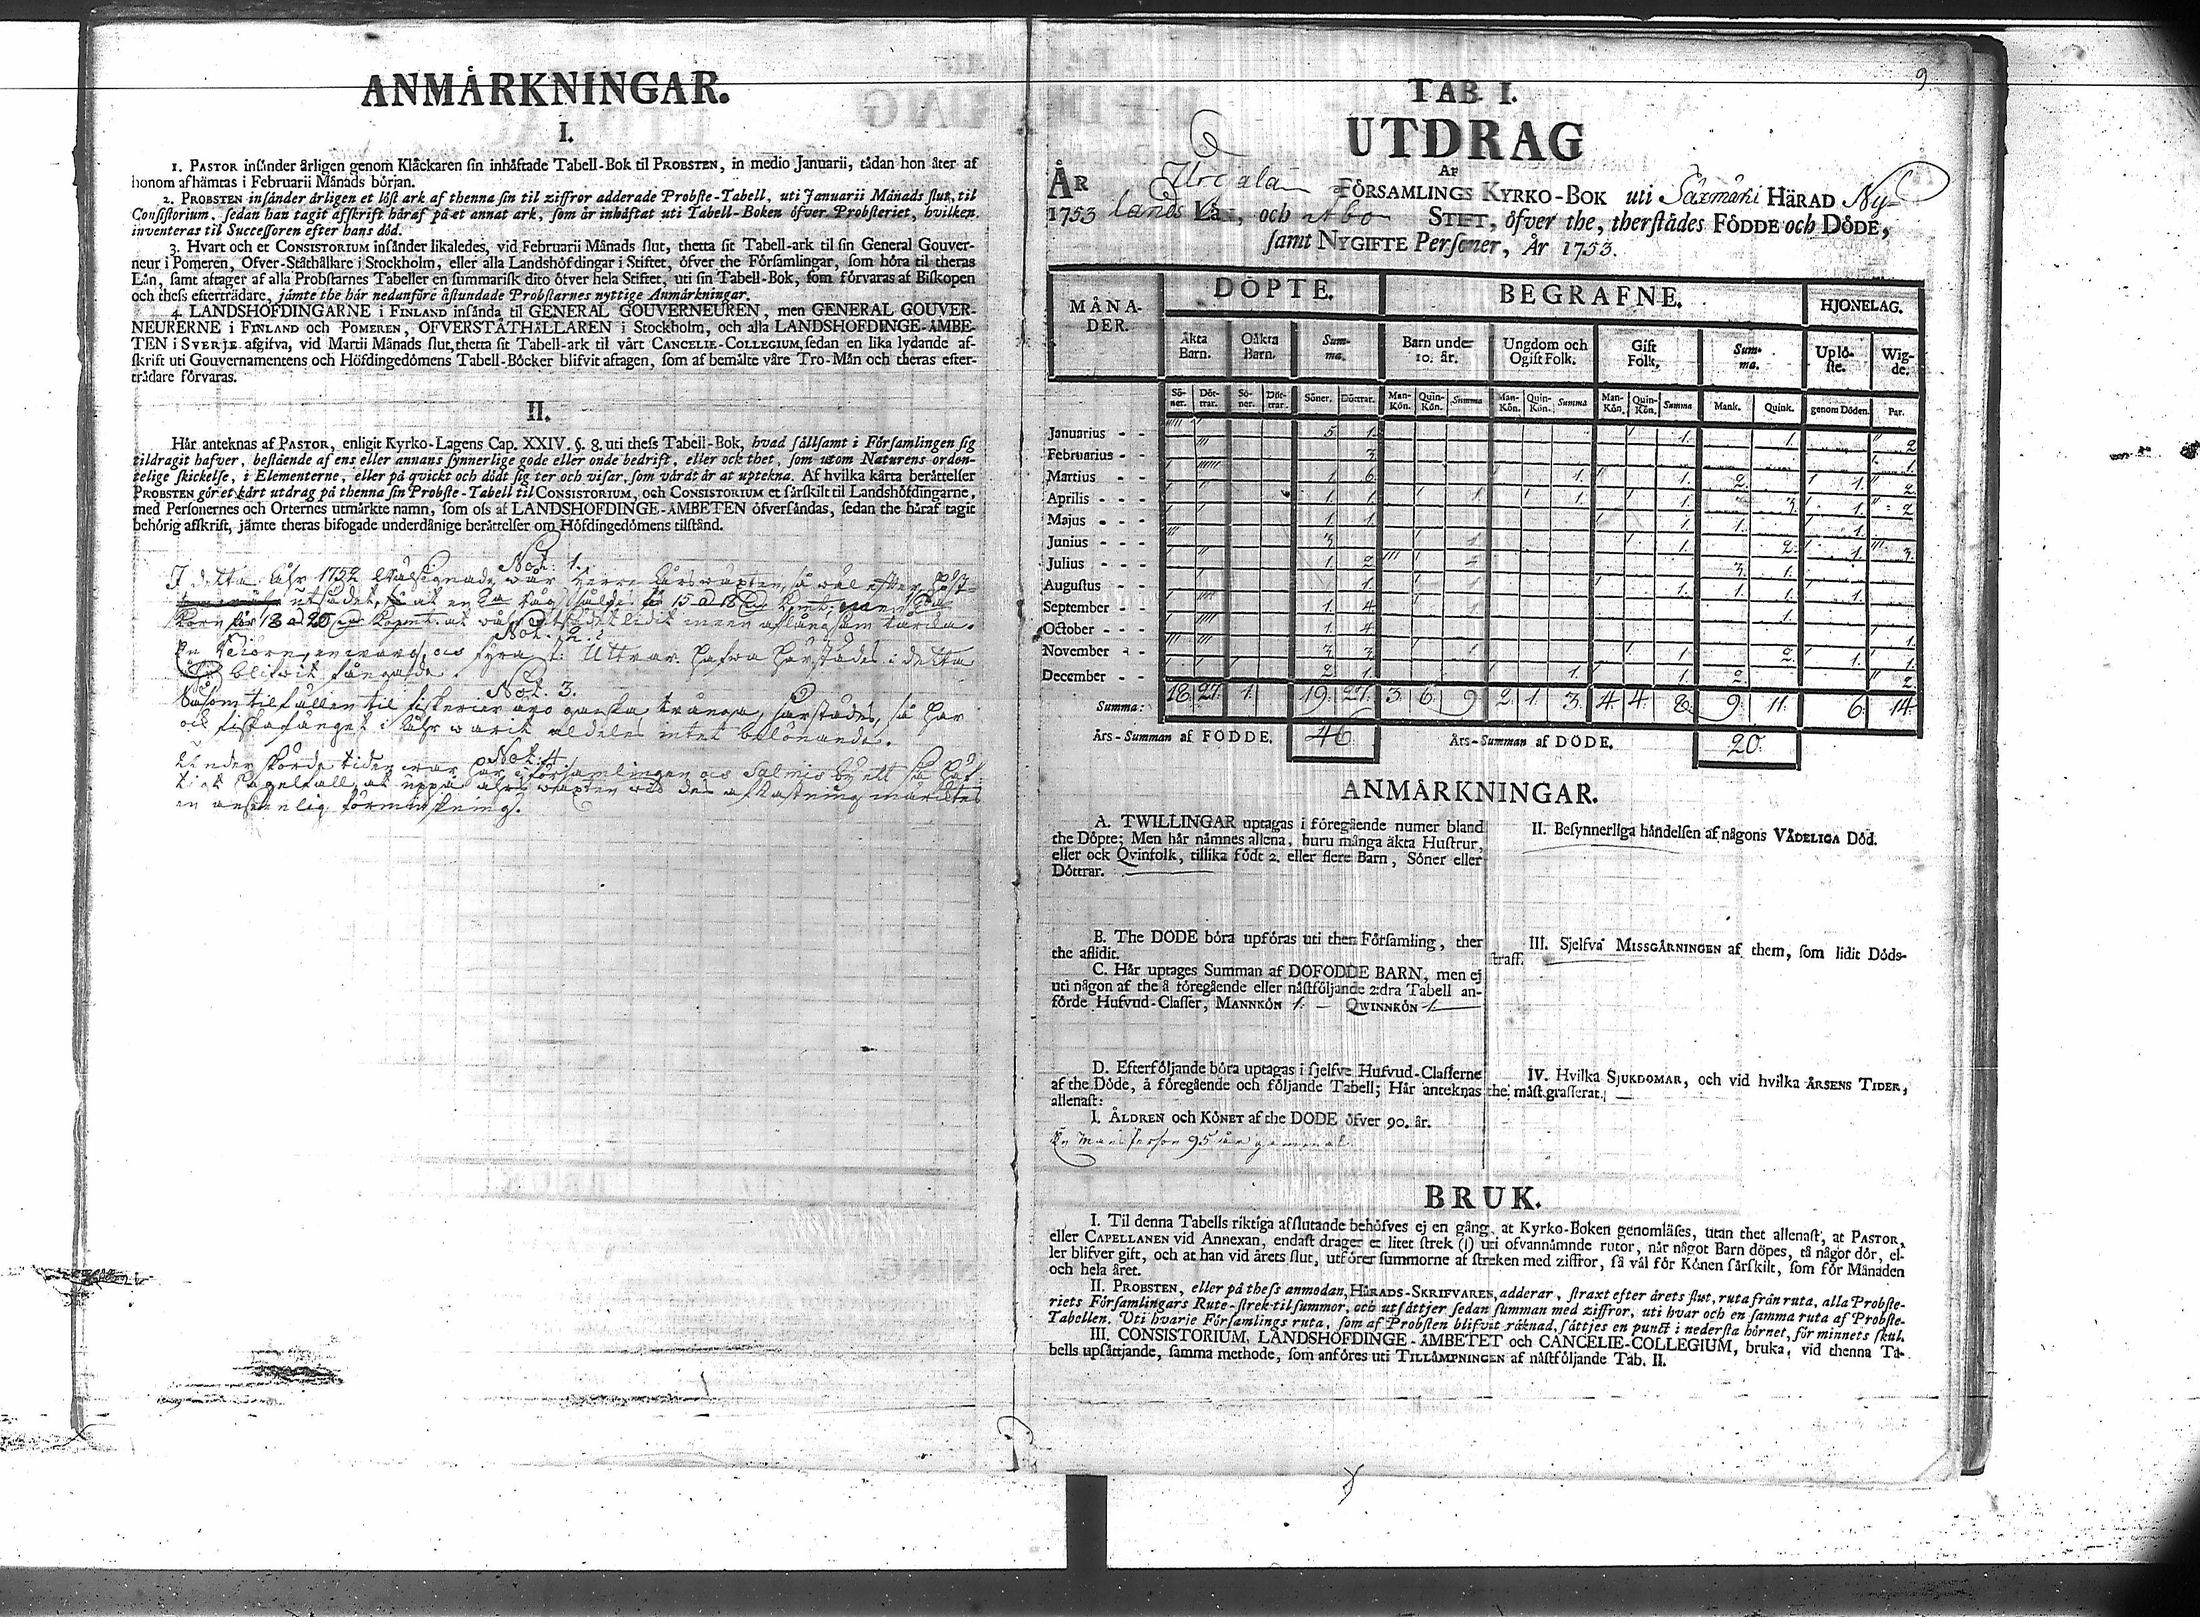 ANMÅRKNINGAR.
I.
1. PASTOR insånder årligen genom Klåckaren sin inhåftade Tabell-Bok til PROBSTEN, in medio Januarii, tådan hon åter af
honom afhåmtas i Februarii Månads början.
2. PROBSTEN insånder årligen et löst ark af thenna sin til ziffror adderade Probste-Tabell, uti Januarii Månads slut, til
Consistorium, sedan han tagit afskrift håraf på et annat ark, som år inhåftat uti Tabell-Boken öfver Probsteriet, hvilken
inventeras til Successoren efter hans död.
3. Hvart och et CONSISTORIUM insånder likaledes, vid Februarii Månads slut, thetta sit Tabell-ark til sin General Gouver-
neur i Pomeren, Ofver-Ståthållare i Stockholm, eller alla Landshöfdingar i Stiftet, öfver the Församlingar, som höra til theras
Lån, samt aftager af alla Probstarnes Tabeller en summarisk dito öfver hela Stiftet, uti sin Tabell-Bok, som förvaras af Biskopen
och thess eftertrådare, jåmte the hår nedanföre åstundade Probstarnes nyttige Anmårkningar.
4. LANDSHOFDINGARNE i FINLAND insånda til GENERAL GOUVERNEUREN, men GENERAL GOUVER-
NEURERNE i FINLAND och POMEREN, OFVERSTÅTHÅLLAREN i Stockholm, och alla LANDSHOFDINGE-ÅMBE-
TEN i SVERJE afgifva, vid Martii Månads slut, thetta sit Tabell-ark til vårt CANCELIE-COLLEGIUM, sedan en lika lydande af-
skrift uti Gouvernamentens och Höfdingedömens Tabell-Böcker blifvit aftagen, som af bemålte våre Tro-Mån och theras efter-
trådare förvaras.
II.
Hår anteknas af PASTOR, enligit Kyrko-Lagens Cap. XXIV. §. 8. uti thess Tabell-Bok, hvad sållsamt i Församlingen sig
tildragit hafver, bestående af ens eller annans synnerlige gode eller onde bedrift, eller ock thet, som utom Naturens ordon-
telige skickelse, i Elementerne, eller på qvickt och dödt sig ter och visar, som vårdt år at uptekna. Af hvilka kårta beråttelser
PROBSTEN gör et kårt utdrag på thenna sin Probste-Tabell til CONSISTORIUM, och CONSISTORIUM et sårskilt til Landshöfdingarne,
med Personernes och Orternes utmårkte namn, som oss af LANDSHOFDINGE-ÅMBETEN öfversåndas, sedan the håraf tagit
behörig afskrift, jåmte theras bifogade underdånige beråttelser om Höfdingedömens tilstånd.
Not: 1.
I detta åhr 1752 wålsignade war Herre årswåxten, så wål efter
utsådet, at en
korn
Not. 2.
En Biörn, en warg, och fyra st: Uttrar hafwa hårstådes i detta
åhr blifwit fångade.
Not. 3.
Såsom tilfållen til fiskerier åro ganska trånga, hårstådes, så har
ock fiskafånget i åhr warit aldeles intet belönande.
Not: 4.
Under skörde tiden war hår i församlingen och Salmis by ett så håf-
tigt hagelfall, at uppå åhrswåxten wid des afkastning mårcktes
en ansenlig förminskning.
9
TAB. I.
UTDRAG
AF
ÅR Urdiala FÖRSAMLINGS KYRKO-BOK uti Saxmåki HÄRAD Ny-
1753 lands Lån, och Abo STIFT, öfver the, therstådes FÖDDE och DÖDE,
samt NYGIFTE Personer, År 1753.
MÅNA- DER. DÖPTE. BEGRAFNE. HJONELAG.
Åkta Barn. Oåkta Barn. Sum- ma. Barn under 10. år. Ungdom och Ogift Folk. Gift Folk. Sum- ma. Uplö- ste. Wig- de.
Sö- ner. Döt- trar. Sö- ner. Döt- trar. Söner. Döttrar. Man- Kön. Quin- Kön. Summa Man- Kön. Quin- Kön. Summa Man- Kön. Quin- Kön. Summa Mank. Quink. genom Döden. Par.
Januarius - - 5 1. 1. 1. 2
Februarius - - 3 1.
Martius - - 1 6. 1. 1. 2. 1. 2
Aprilis - - 1 1. 1 1. 1. 3. 1. 2
Majus - - 1 1. 1. 1. 1.
Junius - - 3 1 1. 2. 1. 3.
Julius - - 1. 2 3. 1.
Augustus - - 1. 1 1. 1. 1.
September - - 1. 4. 1 1. 1.
October - - 1. 4 1.
November - - 3. 3. 1 1. 2. 1. 1.
December - - 2. 1. 1. 1. 2. 2
Summa: 18. 27. 1. 19. 27. 3. 6. 9 2. 1. 3. 4 4. 8. 9. 11. 6. 14.
Års-Summan af FÖDDE. 46. Års-Summan af DÖDE. 20.
ANMÅRKNINGAR.
A. TWILLINGAR uptagas i föregående numer bland
the Döpte; Men hår nåmnes allena, huru många åkta Hustrur,
eller ock Qvinfolk, tillika födt 2. eller flere Barn, Söner eller
Döttrar.
B. The DÖDE böra upföras uti then Församling, ther
the aflidit.
C. Hår uptages Summan af DÖFÖDDE BARN, men ej
uti någon af the å föregående eller nåstföljande 2:dra Tabell an-
förde Hufvud-Classer, MANNKÖN 1. - QWINNKÖN 1.
D. Efterföljande böra uptagas i sjelfve Hufvud-Classerne
af the Döde, å föregående och följande Tabell; Hår anteknas
allenast:
I. ÅLDREN och KÖNET af the DÖDE öfver 90. år.
En Mans Person 95 år gammal
II. Besynnerliga håndelsen af någons VÅDELIGA Död.
III. Sjelfva MISSGÅRNINGEN af them, som lidit Döds-
straff.
IV. Hvilka SJUKDOMAR, och vid hvilka ÅRSENS TIDER,
the måst grasserat.
BRUK.
I. Til denna Tabells riktiga afslutande behöfves ej en gång, at Kyrko-Boken genomlåses, utan thet allenast, at PASTOR,
eller CAPELLANEN vid Annexan, endast drager et litet strek (I) uti ofvannåmnde rutor, når något Barn döpes, så någor dör, el-
ler blifver gift, och at han vid årets slut, utförer summorne af streken med ziffror, så vål för Könen sårskilt, som för Månaden
och hela året.
II. PROBSTEN, eller på thess anmodan, HÅRADS-SKRIFVAREN, adderar, straxt efter årets slut, ruta från ruta, alla Probste-
riets Församlingars Rute-strek til summor, och utsåttjer sedan summan med ziffror, uti hvar och en samma ruta af Probste-
Tabellen. Uti hvarje Församlings ruta, som af Probsten blifvit råknad, såttjes en punct i nedersta hörnet, för minnets skul.
III. CONSISTORIUM, LANDSHOFDINGE-ÅMBETET och CANCELIE-COLLEGIUM, bruka, vid thenna Ta-
bells upsåttjande, samma methode, som anföres uti TILLÅMPNINGEN af nåstföljande Tab. II.